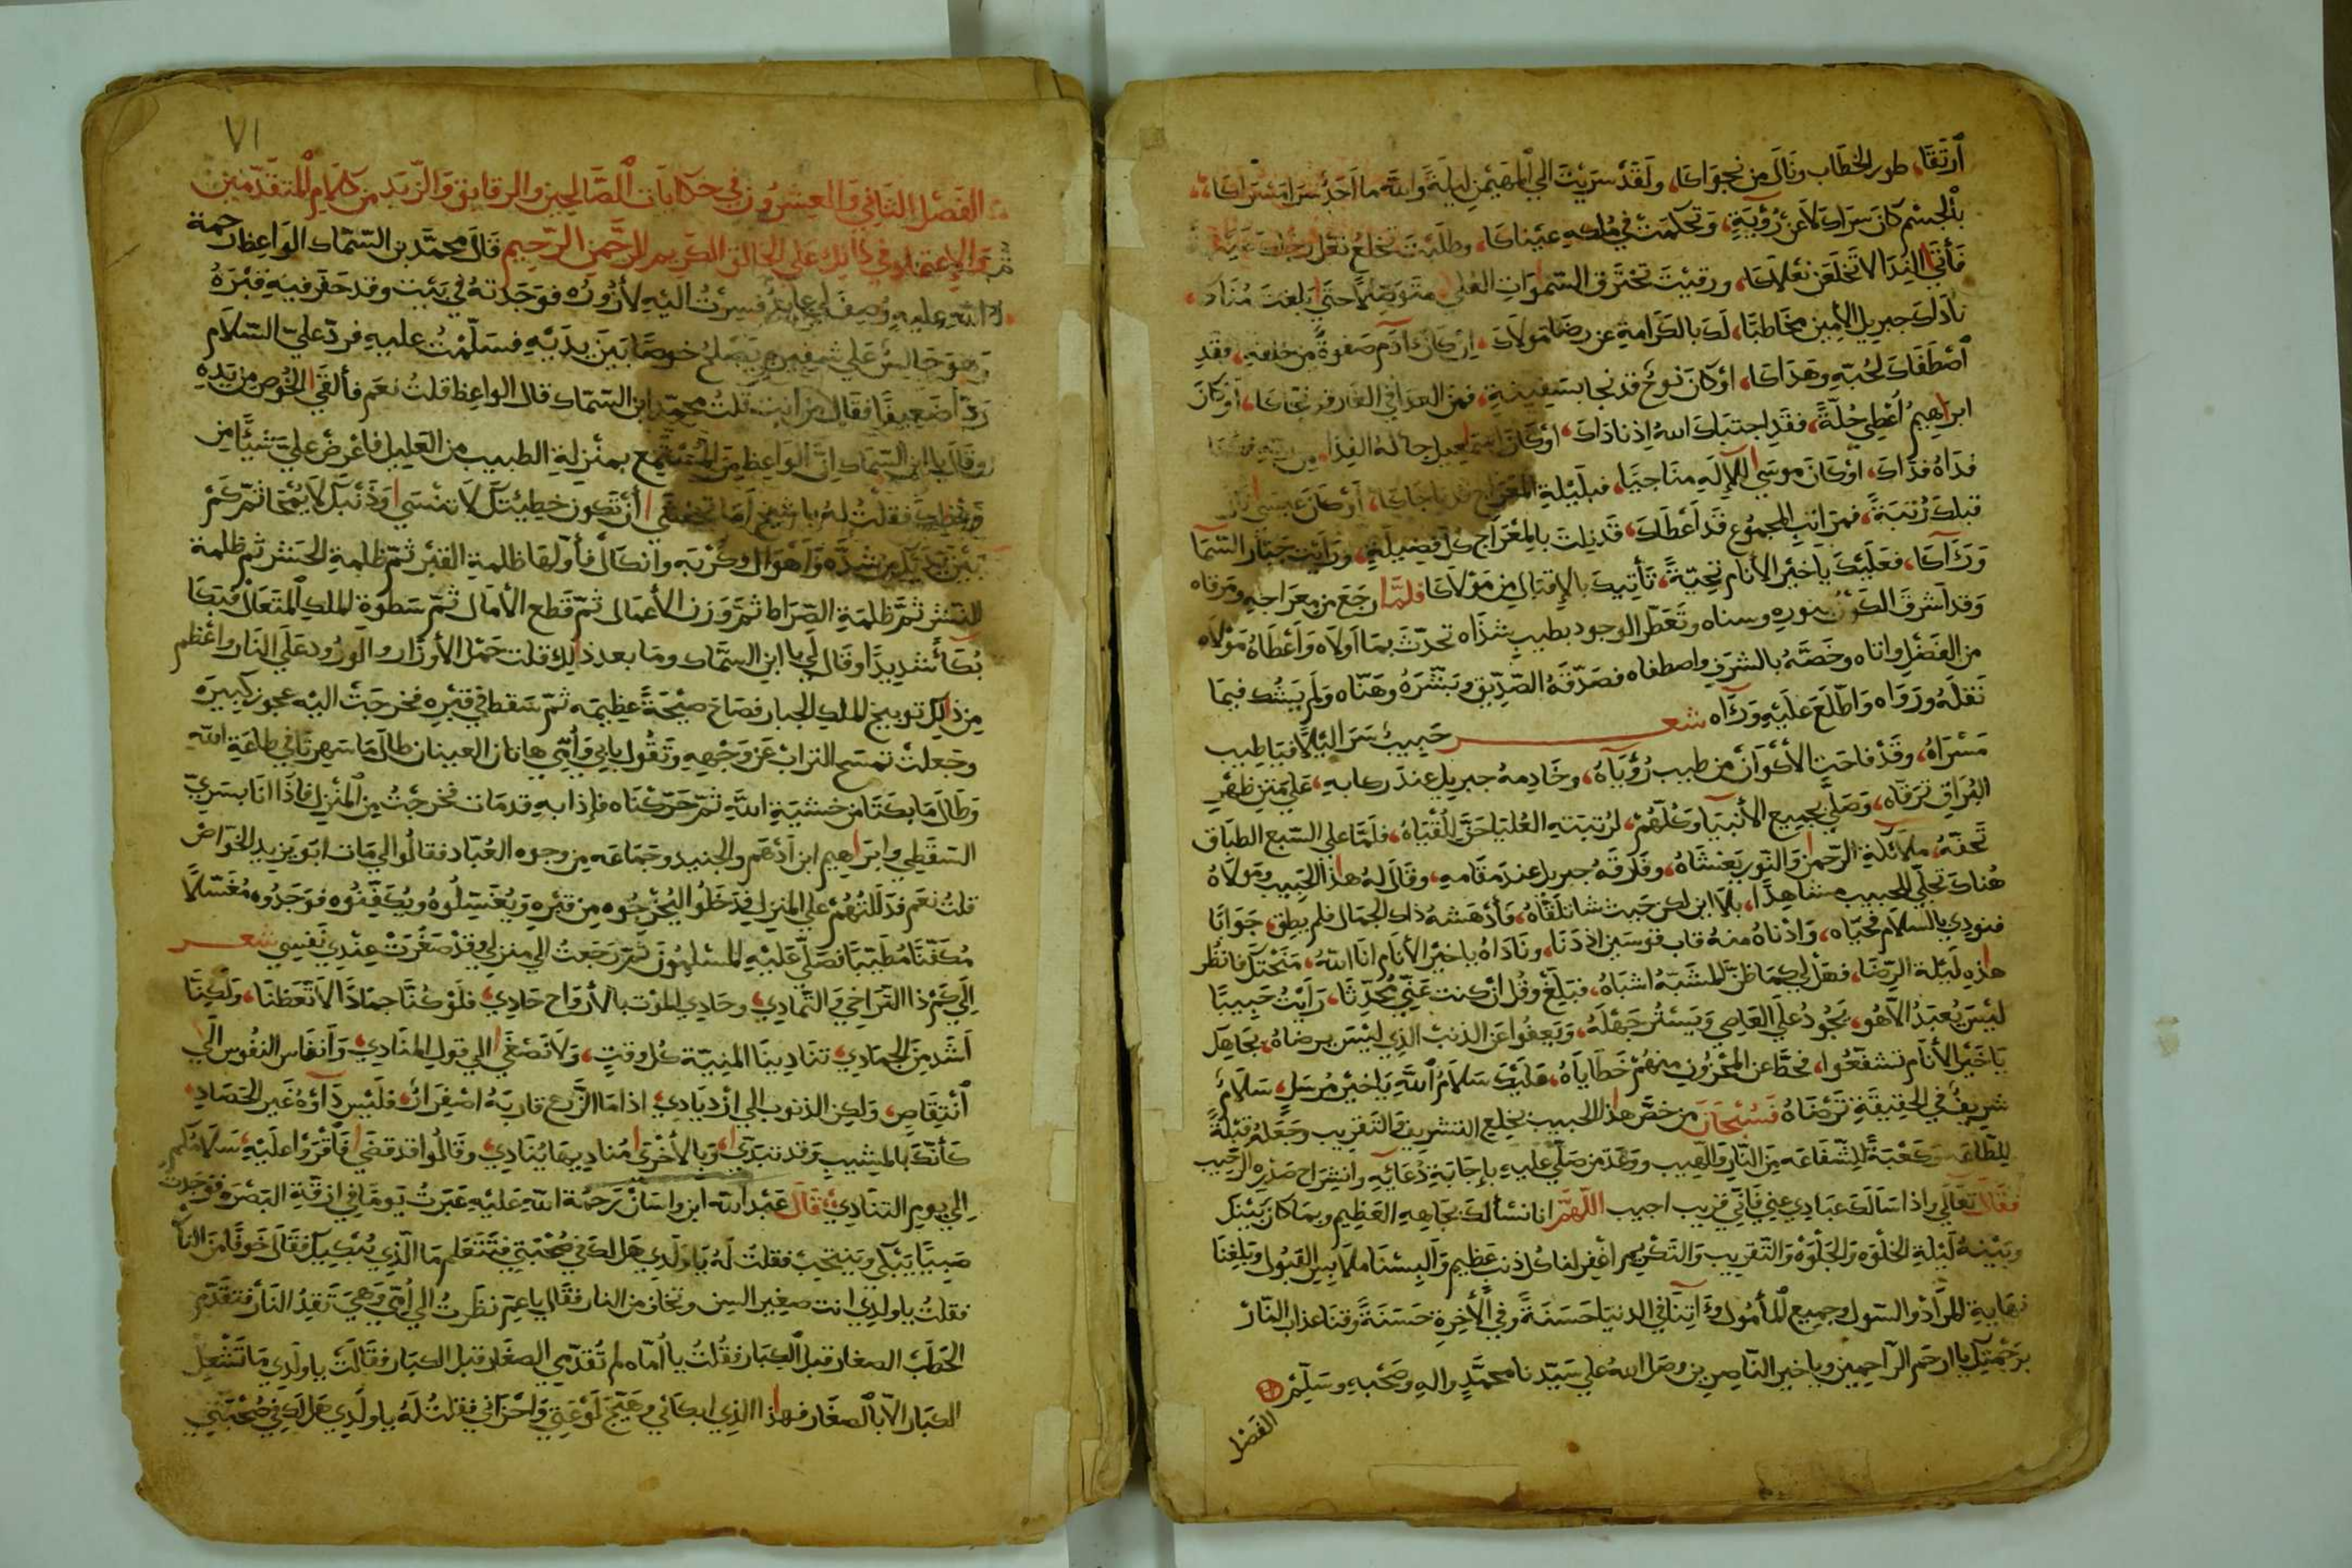 أرتقا، طور الخطاب ونال من نجواكا، ولقد سريت الي المهيمن ليلة والله ما احد سرا مسراكا،
بالجسم كان سراك لا عن رؤية، وتحكمت في ملكه عيناكا، وطلبت تخلع نعل رجلك
فأتي الندا لا تخلعن نعلاكا، ورقيت تخترق السموات العلي متوصلا حتي بلغت مناك،
ناداك جبريل الامين مخاطبا، لك بالكرامة عن رضا مولاك، ان كان آدم صفوة من خلقه، فقد
أصطفاك لحبه وهداكا، اوكان نوح قد نجا بسفينة، فمن العدا في الغار قد نجاكا، اوكان
ابراهيم أعطي خلة، فقد اجتباك الله اذ ناداك، اوكان اسمعيل جا له الفدا من ربه
فداه فداك، اوكان موسي للإله مناجيا، فبليلة المعراج قد ناجاكا، أوكان عيسي نال
قبلك رتبة، فمراتب المجموع قد أعطاك، قد نلت بالمعراج كل فضيلة، ورأيت جبار السما
ورآكا، فعليك يا خير الأنام تحية، تأتيك بالإقبال من مولاكا فلما رجع من معراجه ومرقاه
وقد اشرق الكون بنوره وسناه وتعطر الوجود بطيب شذاه تحدث بما اولاه وأعطاه مولاه
من الفضل واتاه وخصه بالشرف واصطفاه فصدقه الصديق وبشره وهناه ولم يشك فيما
نقله ورواه واطلع عليه ورآه شعر حبيب سرا ليلا فيا طيب
مسراه، وقد فاحت الأكوان من طيب رؤياه، وخادمه جبريل عند ركابه، علي متن ظهر
البراق ترقاه، وصلي بجميع الأنبيا وكلهم، لرتبته العليا حق للقياه، فلما علي السبع الطباق
تحفه، ملائكة الرحمن والنور يغشاه، وفارقه جبريل عند مقامه، وقال له هذا الحبيب ومولاه
هناك تجلي للحبيب مشاهدا، بلا اين لكن حيث شا تلقاه، فأدهشه ذاك الجمال فلم يطق، جوابا
فنودي بالسلام فحياه، وادناه منه قاب قوسين اذ دنا، وناداه يا خير الأنام انا الله، منحتك فانظر
هذه ليلة الرضا، فهل لي كما ظن المشبه اشباه، فبلغ وقل ان كنت عني محدثا، رأيت حبيبا
ليس يعبد الا هو، يجود علي العاصي ويستر جهله، ويعفوا عن الذنب الذي ليس يرضاه، بجاهك
يا خير الأنام تشفعوا، فحط عن المحزون منهم خطاياه، عليك سلام الله يا خير مرسل، سلام
شريف في الحقيقة ترضاه فسبحان من خص هذا الحبيب بخلع التشريف والتقريب وجعله قبلة
للطاعة وكعبة للشفاعة من النار واللهيب ووعد من صلي عليه بإجابة دعائه وانشراح صدره الرحيب
فقال تعالي واذا سألك عبادي عني فاني قريب اجيب اللهم انا نسألك بجاهه العظيم وبما كان بينك
وبينه ليلة الخلوه والجلوه والتقريب والتكريم اغفر لنا كل ذنب عظيم وألبسنا ملابس القبول وبلغنا
نهاية المراد والسول وجميع المأمول وآتنا في الدنيا حسنة وفي الآخرة حسنة وقنا عذاب النار
برحمتك يا ارحم الراحمين ويا خير الناصرين وصل الله علي سيدنا محمد واله وصحبه وسلم
الفصل
٧١
الفصل الثاني والعشرون في حكايات الصالحين والرقايق والزبد من كلام المتقدمين
والإعتماد في ذلك علي الخالق الكريم الرحمن الرحيم قال محمد بن السماك الواعظ رحمة
الله عليه وصف لي عابد فسرت اليه لأزوره فوجدته في بيت وقد حفر فيه قبره
وهو جالس علي شفيره يصلح خوصا بين يديه فسلمت عليه فرد علي السلام
ردا ضعيفا فقال من انت قلت محمد ابن السماك قال الواعظ قلت نعم فألقي الخوص من يده
وقال يا ابن السماك ان الواعظ من المستمع بمنزلة الطبيب من العليل فاعرض علي شيأ من
وعظك فقلت له يا شيخ اما تخشي أن تكون خطيئتك لا تنسي وذنبك لا يمحا ثم كم
بين يديك من شده واهوال وكربه وانكال فأولها ظلمة القبر ثم ظلمة الحشر ثم ظلمة
النشر ثم ظلمة الصراط ثم وزن الأعمال ثم قطع الأمال ثم سطوة الملك المتعال فبكا
بكأ شديدا وقال لي يا ابن السماك وما بعد ذلك قلت حمل الأوزار والورود علي النار واعظم
من ذلك توبيخ الملك الجبار فصاح صيحة عظيمه ثم سقط في قبره فخرجت اليه عجوز كبيره
وجعلت تمسح التراب عن وجهه وتقول بابي وأمي هاتان العينان طال ما سهرتا في طاعة الله
وطال ما بكتا من خشية الله ثم حركناه فإذا به قد مات فخرجت من المنزل فاذا انا بسري
السقطي وابراهيم ابن أدهم والجنيد وجماعه من وجوه العباد فقالوا لي مات ابو يزيد الخواص
قلت نعم فدللتهم علي المنزل فدخلوا ليخرجوه من قبره ويغسلوه ويكفنوه فوجدوه مغسلا
مكفنا مطيبا فصلي عليه المسلمون ثم رجعت الي منزلي وقد صغرت عندي نفسي شعر
الي كم ذا التراخي والتمادي، وحادي الموت بالأرواح حادي، فلو كنا جمادا لاتعظنا، ولكنا
اشد من الجمادي، تنادينا المنية كل وقت، ولا نصغي الي قول المنادي، وأنفاس النفوس الي
أنتقاص، ولكن الذنوب الي ازديادي، اذا ما الزرع قاربه اصفرار، فليس دآؤه غير الحصاد،
كأنك بالمشيب وقد تبدي، وبالأخري مناديها ينادي، وقالوا قد قضي فأقرؤا عليه، سلامكم
الي يوم التنادي، قال عبد الله ابن واسان رحمة الله عليه عبرت يوما في ازقة البصره فوجدت
صبيا يبكي وينتحب فقلت له يا ولدي هل لك في صحبتي فتتعلم ما الذي يبكيك فقال خوفا من النار
فقلت يا ولدي انت صغير السن وتخاف من النار فقال يا عم نظرت الي أمي وهي تقد النار فتقدم
الحطب الصغار قبل الكبار فقلت يا اماه لم تقدمي الصغار قبل الكبار فقالت يا ولدي ما تشعل
الكبار الا بالصغار فهذا الذي ابكاني وهيج لوعتي واحزاني فقلت له يا ولدي هل لك في صحبتي